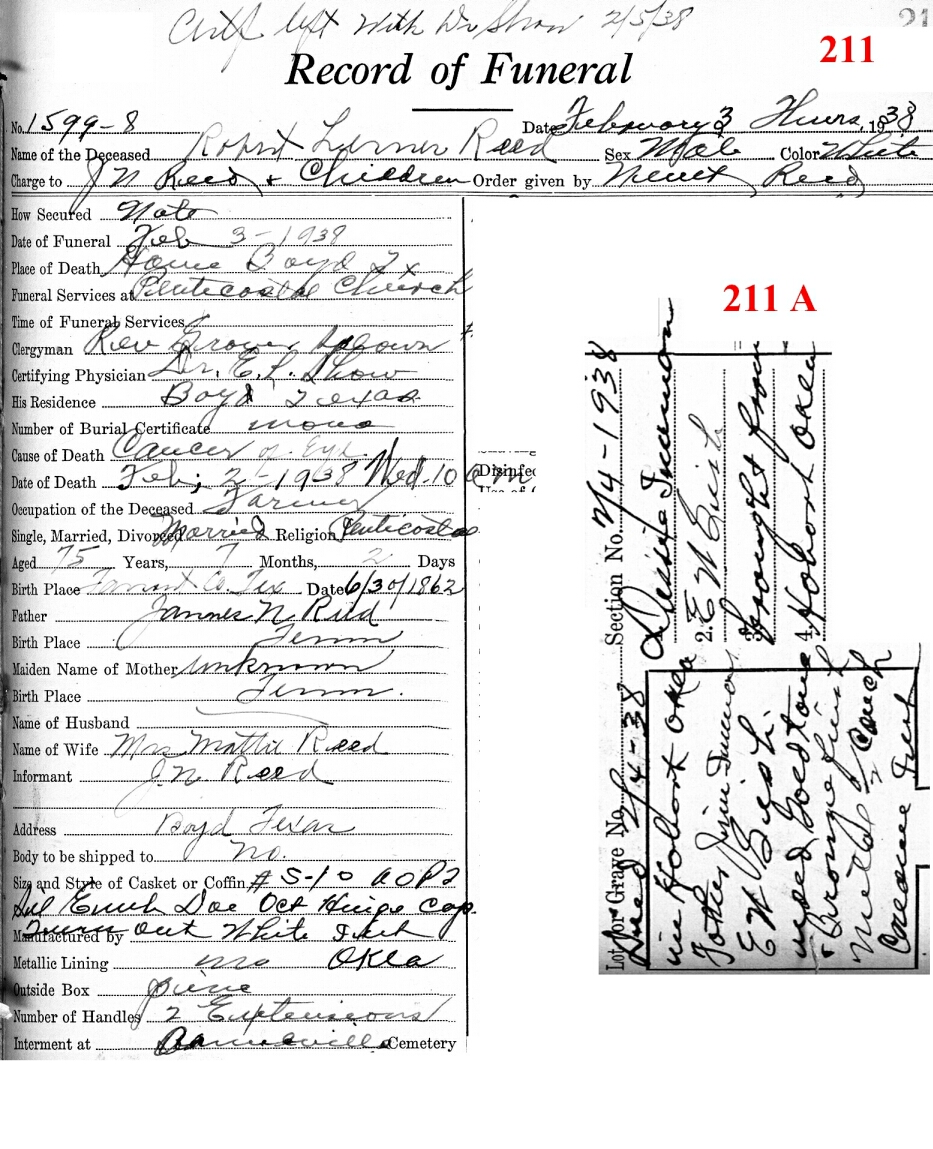 Certf left With Dr Show 2/5/38
211
Record of Funeral
No. 1599-8 Date February 3 Thurs, 1938
Name of the Deceased Robert Reed Sex Male Color White
Charge to J N Reed & Children Order given by Newt Reed
How Secured Note
Date of Funeral Feb 3-1938
Place of Death Home Boyd Tx
Funeral Services at Penticostal Church
Time of Funeral Services
Clergyman Rev Grover
Certifying Physician Dr. E. L. Show
His Residence Boyd Texas
Number of Burial Certificate none
Cause of Death Cancer of Eye
Date of Death Feb, 2-1938 Wed. 10 am
Disinfec
Use of (
Occupation of the Deceased Farmer
Single, Married, Divorced Married Religion Penticostal
Aged 75 Years, 7 Months, 2 Days
Birth Place Tarrant Co. Tex Date 6/30/1862
Father James N Reed
Birth Place Tenn
Maiden Name of Mother Unknown
Birth Place Tenn.
Name of Husband
Name of Wife Mrs Mattie Reed
Informant J. N. Reed
Address Boyd Texas
Body to be shipped to no.
Size and Style of Casket or Coffin # S-10
Sil Emb Doe Oct Hinge Cap
Manufactured by Turn out White Int
Metallic Lining no Okla
Outside Box pine
Number of Handles 2 Extensions
Interment at Cemetery
211 A
Lot or Grave No. 2/4-38 Section No. 2/4-1938
Died
in Hobart Okla
Father Jim
E W
used Goldtone
Bronze finish
metal Couch
Creame Int
2. E W
3. brought from
4. Hobart Okla